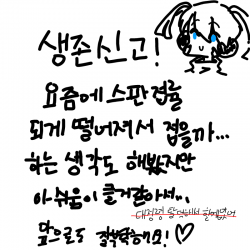 생존신고!
요즘에 스판 접률
되게 떨어져서 접을까...
하는 생각도 해봤지만
아쉬움이 클거같아서...
대정령 탈덕해서 할애없어
앞으로도 잘부탁해요! ♡